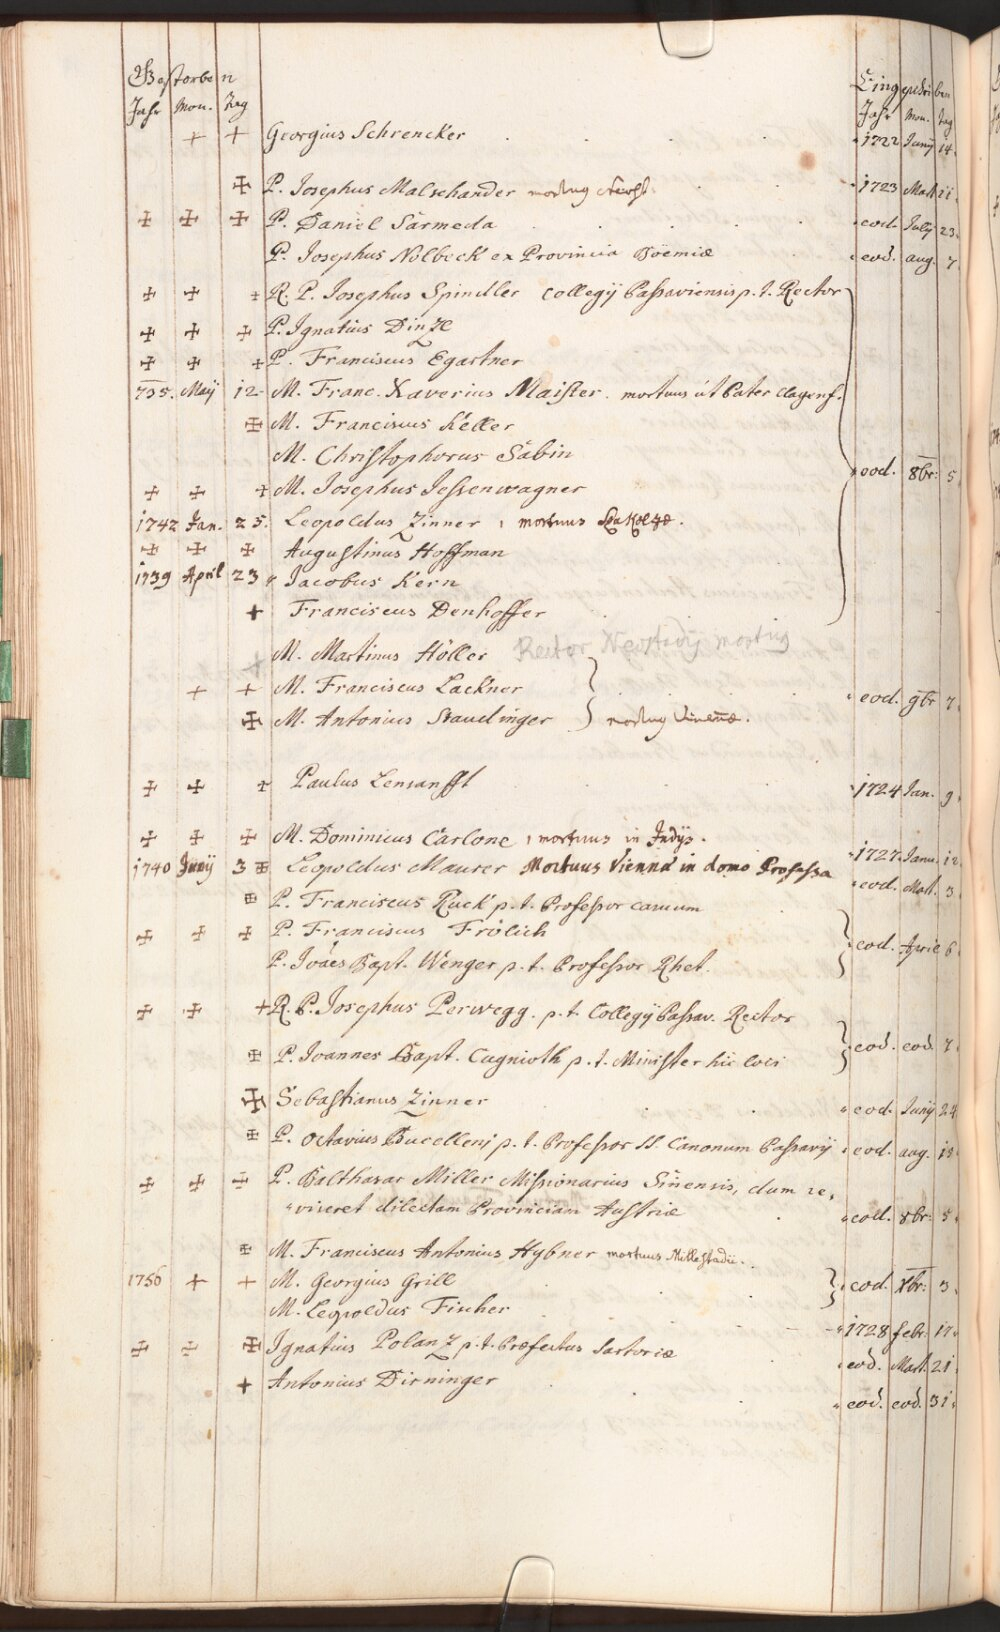 Gestorben Eingeschriben
Jahr Mon. Tag Jahr Mon. tag
+ + Georgius Schrencker 1722 Junij 14.
✠ P. Josephus Malschander mortuus 1723 Mart 11.
✠ ✠ ✠ P. Daniel Sarmeda eod. July 23.
P. Josephus Nölbeck ex Provincia Boëmiæ eod. aug. 7
✠ ✠ + R. P. Josephus Spindler Collegij Passaviensis p. t. Rector
✠ ✠ ✠ P. Ignatius Dinzl
✠ ✠ ✠ P. Franciscus Egartner
735. Maij 12. M. Franc. Xaverius Maister. mortuus út Pater Clagenf.
✠ M. Franciscus Keller
M. Christophorus Sabin eod. 8br: 5
✠ ✠ ✠ M. Josephus Jessenwagner
1742 Jan. 25. Leopoldus Zinner, mortuus
✠ ✠ ✠ Augustinus Hoffman
1739 April 23 Jacobus Kern
+ Franciscus Denhoffer
+ M. Martinus Höller Rector Neostadij mortuus
+ + M. Franciscus Lackner eod. 9br 7
✠ M. Antonius Staudinger mortuus Viennæ.
✠ ✠ + Paulus Lensansfft 1724 Jan. 9
✠ ✠ ✠ M. Dominicus Carlone, mortuus in Indijs. 1727. Janu. 12
1740 Junij 3 ✠ Leopoldus Maurer Mortuus Vienna in domo Professa eod. Mart. 3
✠ P. Franciscus Ruck p. t. Professor casuum
✠ ✠ ✠ P. Franciscus Frölich eod. April 6
P. Joaes Bapt. Wenger p. t. Professor Rhet.
✠ ✠ + R. P. Josephus Perwegg. p. t. Collegij Passav. Rector
✠ P. Joannes Bapt. Cugnioth p. t. Minister hic loci eod. eod. 7
✠ Sebastianus Zinner eod. Junij 24
✠ P. Octavius Bucellenj p. t. Professor SS. Canonum Passavij eod. aug. 13
✠ ✠ ✠ P. Balthasar Miller Missionarius Sinensis, dum re,
viseret dilectam Provinciam Austriæ eod. 8br: 5
✠ M. Franciscus Antonius Hybner mortuus Millestadii.
1756 + + M. Georgius Grill eod. Xbr: 3
M. Leopoldus Fischer 1728 febr: 17
✠ ✠ ✠ Ignatius Polanz p. t. Præfectus Sartoriæ eod. Mart. 21
+ Antonius Dirninger eod. eod. 31